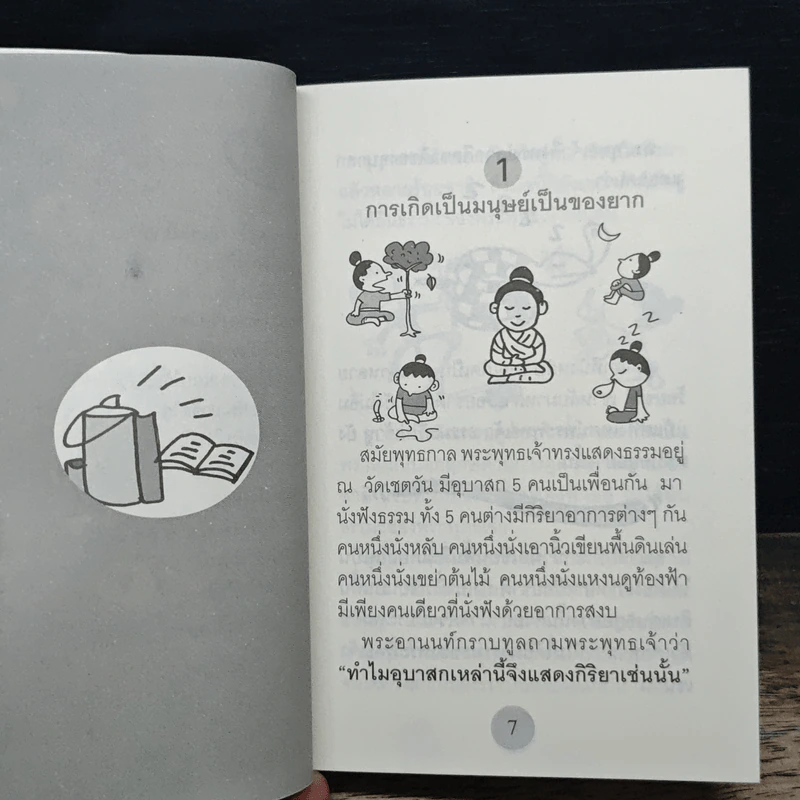 1
การเกิดเป็นมนุษย์เป็นของยาก
z z z
สมัยพุทธกาล พระพุทธเจ้าทรงแสดงธรรมอยู่
ณ วัดเชตวัน มีอุบาสก 5 คนเป็นเพื่อนกัน มา
นั่งฟังธรรม ทั้ง 5 คนต่างมีกิริยาอาการต่างๆ กัน
คนหนึ่งนั่งหลับ คนหนึ่งนั่งเอานิ้วเขียนพื้นดินเล่น
คนหนึ่งนั่งเขย่าต้นไม้ คนหนึ่งนั่งแหงนดูท้องฟ้า
มีเพียงคนเดียวที่นั่งฟังด้วยอาการสงบ
พระอานนท์กราบทูลถามพระพุทธเจ้าว่า
“ทำไมอุบาสกเหล่านี้จึงแสดงกิริยาเช่นนั้น”
7